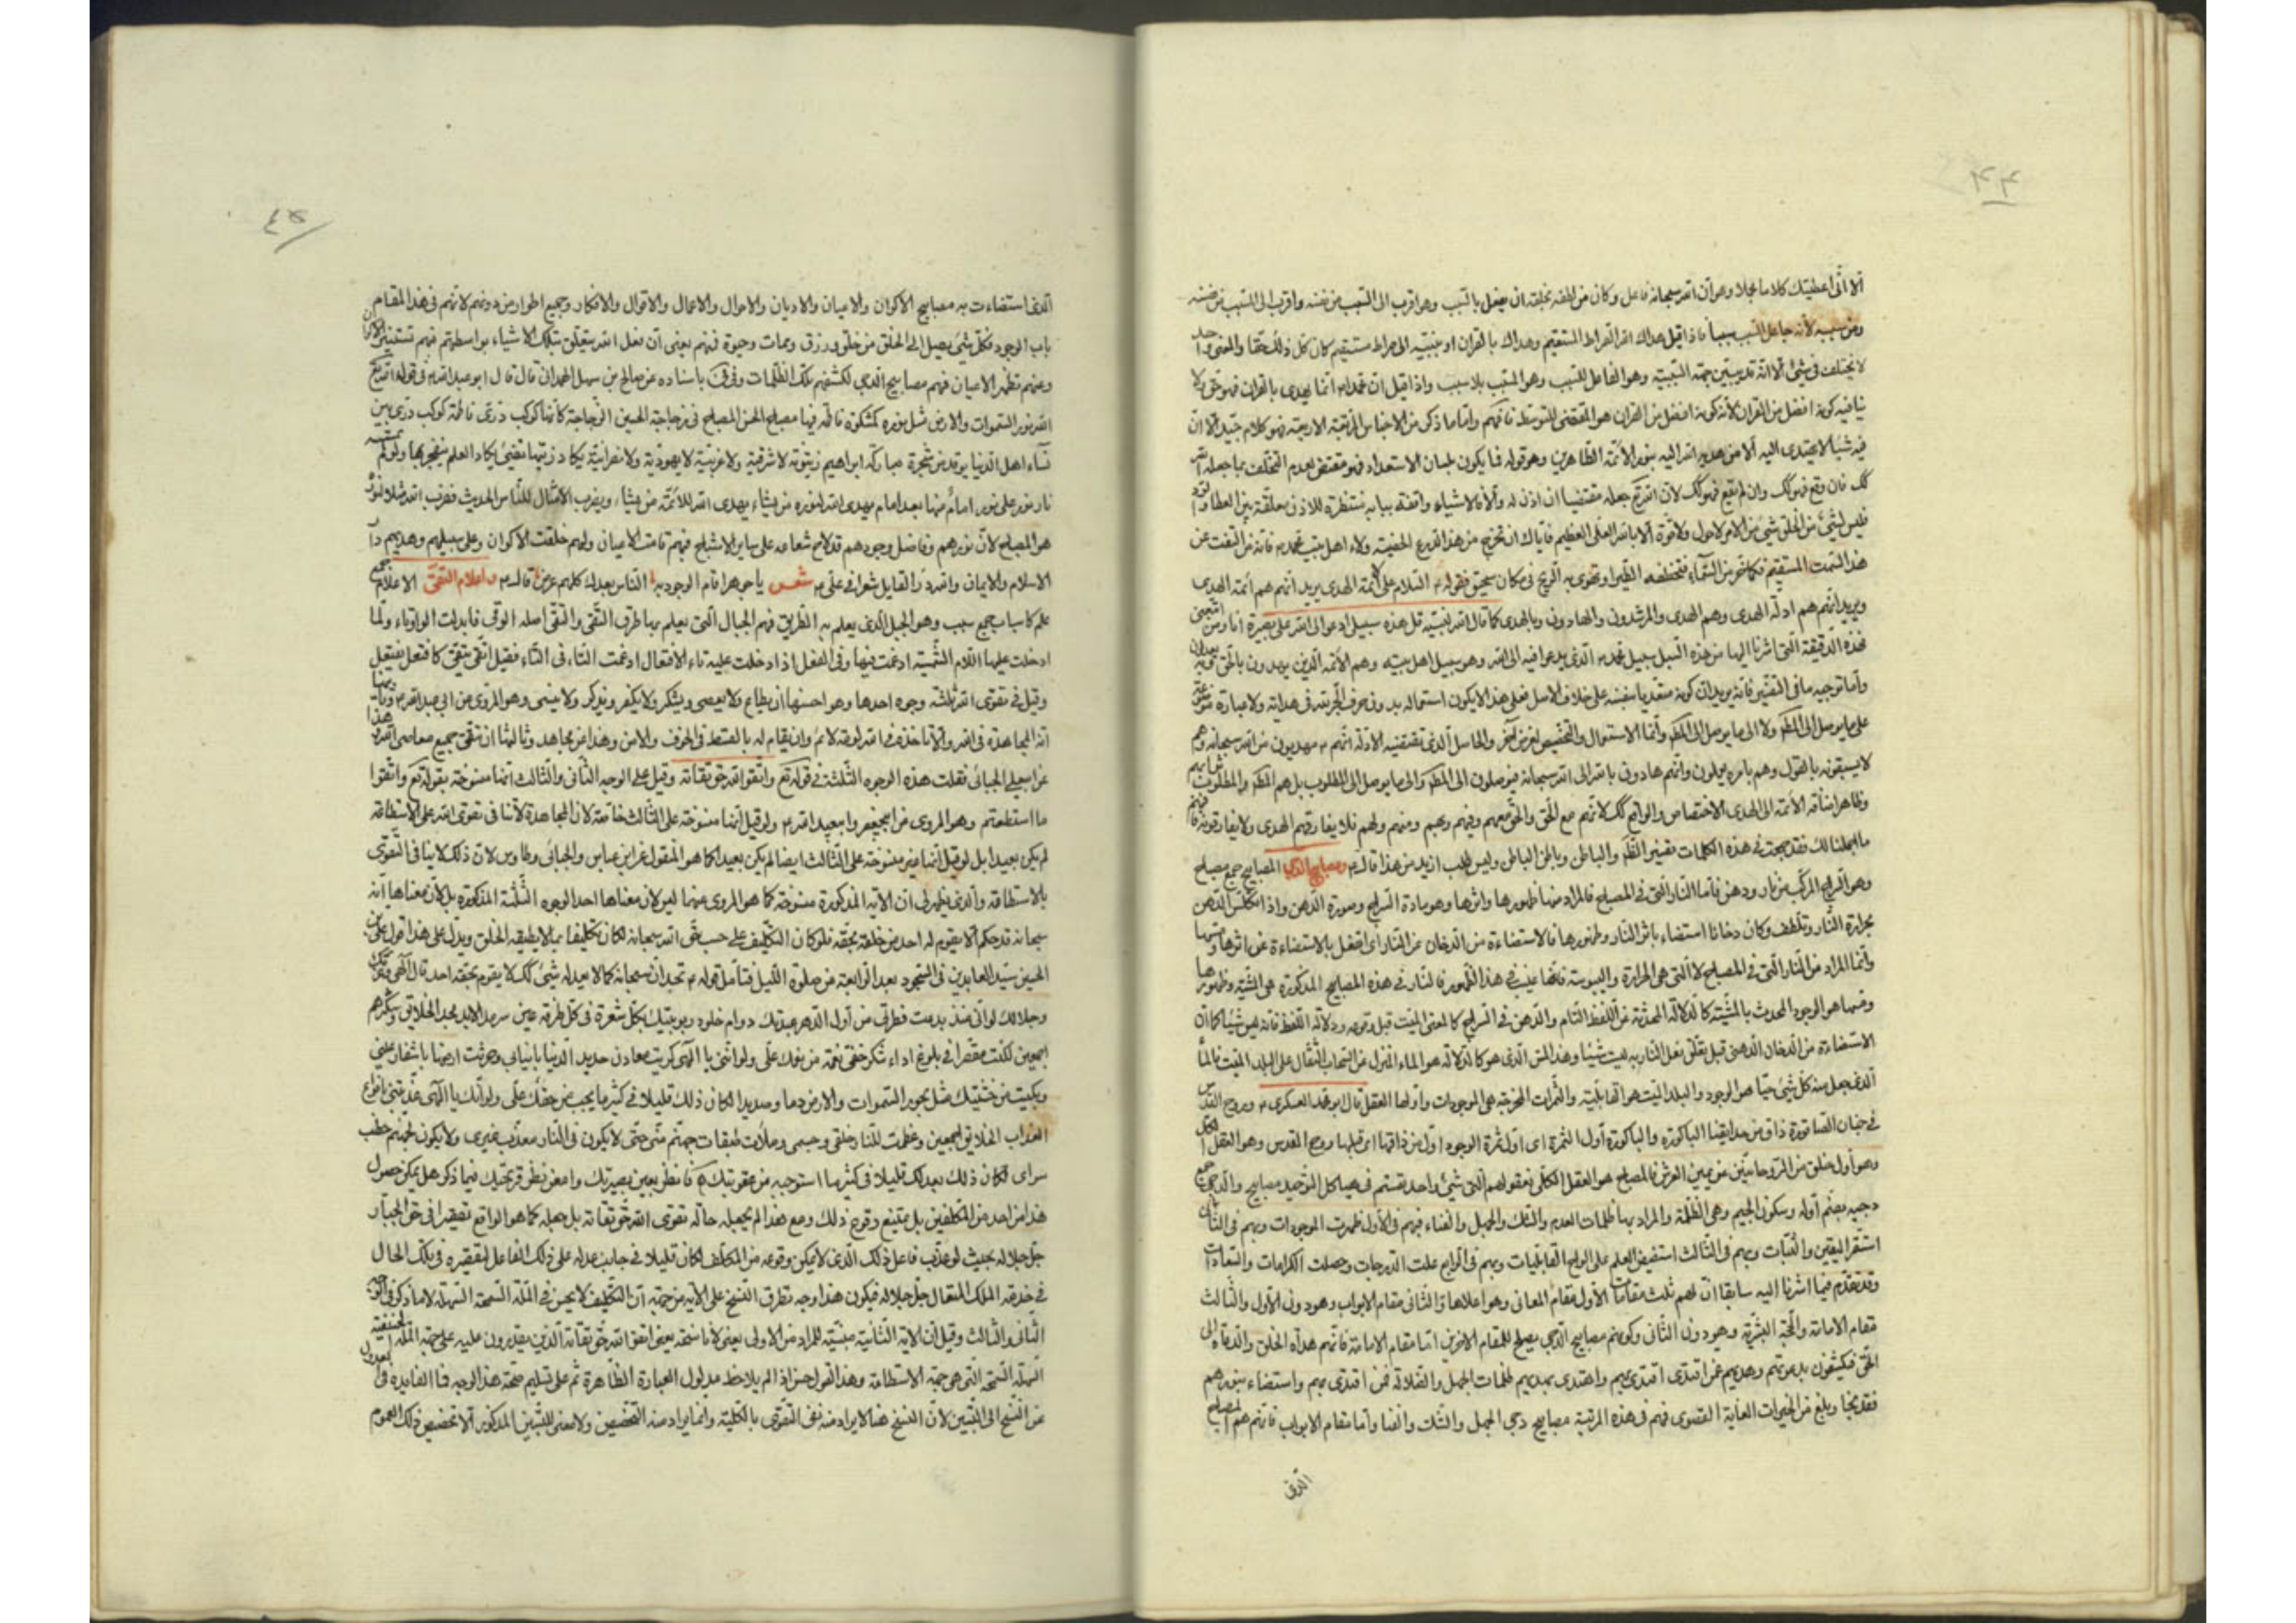 ٤٤
الا انّى اعطيتك كلاما مجملا وهو انّ الله سبحانه فاعل وكان من لطفه بخلقه ان يفعل بالسّبب وهو اقرب الى السّبب من نفسه واقرب الى المسبب من نفسه
ومن سببه لأنه جاعل السّبب سببا فاذا قيل هداك الله الصّراط المستقيم وهداك بالقران او بنبيّه الى صراط مستقيم كان كل ذلك حقا والمعنى واحد
لا يختلف فى شئ الا انّه قد يبيّن جهة السّببية وهو الفاعل للسّبب وهو المسبّب بلا سبب واذا قيل ان محمدا انما يهدى بالقران فهو حق ولا
ينافيه كونه افضل من القران لأنه كونه افضل من القران هو المقتضى للتوسط فافهم وامّا ما ذكر من الاجناس الاربعة فهو كلام جيّد الا انّ
فيه شيئا لا يهتدى اليه الا من هديه الله اليه بنور الأئمّة الطّاهرين وهو قوله فيما يكون بلسان الاستعداد فهو مقتض لعدم التخلّف بما جعله الله
كك فان وقع فهو كك وان لم يقع فهو كك لانّ الله تع جعله مقتضيا ان اذن له والا فالاشياء واقفة ببابه منتظرة للاذن معلّقة بين العطا والرّد
فليس لشئ من الخلق شئ من الامر ولا حول ولا قوة الا بالله العلى العظيم فايّاك ان تخرج من هذا الدرع الحصينة ولاء اهل بيت محمد فانه من التفت عن
هذا السّمت المستقيم فكانما خر من السّماء فتخطفه الطّير او تهوى به الريح فى مكان سحيق فقوله السّلام على ائمّة الهدى يريد انّهم هم ائمّة الهدى
ويريد انّهم هم ادلّة الهدى وهم الهدى والمرشدون والهادون وبالهدى كما قال الله لنبيّه قل هذه سبيلى ادعو الى الله على بصيرة انا ومن اتّبعنى
فهذه الدّقيقة الّتى اشرنا اليها من هذه السّبيل سبيل محمد الّذى يدعو فيه الى الله وهو سبيل اهل بيته وهم الأئمّة الّذين يهدون بالحقّ وبه يعدلون
وامّا توجيه ما فى التفسير فانه يريد ان كونه متعدّيا بنفسه على خلاف الاصل فعلى هذا لا يكون استعماله بدون حرف الجرّ
على ما يوصل الى المط ولا الى ما يوصل الى المط وانّما الاستعمال والتخصيص لغرض آخر والحاصل الّذى تقتضيه الادلّة انّهم مهديون من الله سبحانه وهم
لا يسبقونه بالقول وهم بامره يعملون وانّهم هادون بالله الى الله سبحانه فيوصلون الى المط والى ما يوصل الى المطلوب بل هم المط والمطلوب
وظاهر اضافة الأئمّة الى الهدى الاختصاص والواقع كك لانّهم مع الحقّ والحقّ معهم وفيهم وبهم ومنهم ولهم فلا يفارقهم الهدى ولا يفارقونه
ما اجملنا لك فقد جمعت فى هذه الكلمات تفسير الظّهر والباطن وباطن الباطن وليس طلب ازيد من هذا قال ومصابيح الدّجى المصابيح جمع مصباح
وهو السّراج المركّب من نار ودهن فامّا النّار الّتى فى المصباح فالمراد منها ظهورها واثرها وهو مادة السّراج وصورته الدّهن واذا تكلّس الدّهن
بحرارة النّار وتلطّف وكان دخانا استضاء باثر النّار وظهورها فالاستضاءة من الدخان عن النّار اى انفعل بالاستضاءة عن اثرها ومسّها
وانّما المراد من النّار الّتى فى المصباح لا الّتى هى الحرارة واليبوسة فانّها غيب فى هذا الظّهور فالنّار فى هذه المصابيح المذكورة هى المشيّة وظهورها
ومسّها هو الوجود المحدث بالمشيّة كالدلالة المحدثة عن اللّفظ التّام والدّهن فى السّراج كالمعنى الميّت قبل وقوع دلالة اللّفظ فانه ليس شيئا كما انّ
الاستضاءة من الدخان الدّهنى قبل تعلّق فعل النّار به ليست شيئا وهذا المسّ الّذى هو كالدّلالة هو الماء المنزل من السّحاب الثّقال على البلد الميّت فالماء
الّذى جعل منه كلّ شئ حيّا هو الوجود والبلد الميّت هو القابليّة والثّمرات المخرجة هى الموجودات واولها العقل قال ابو محمد العسكرى وروح القدس
فى جنان الصّاقورة ذاق من حدايقنا الباكورة والباكورة اول الثمرة اى اول ثمرة الوجود اول من ذاقها اى قبلها روح القدس وهو العقل الكلّ
وهو اول خلق من الرّوحانيّين عن يمين العرش فالمصباح هو العقل الكلّى فعقولهم الّتى شئ واحد تقسم فى هياكل التّوحيد مصابيح والدّجى جمع
دجيه بضمّ اوله وسكون الجيم وهى الظّلمة والمراد بها ظلمات العدم والشّك والجهل والفناء فبهم فى الاول ظهرت الموجودات وبهم فى الثّانى
استقر اليقين والثّبات وبهم فى الثّالث استفيض العلم على الواح القابليّات وبهم فى الرّابع علت الدّرجات وحصلت الكرامات والسّعادات
وقد تقدّم فيما اشرنا اليه سابقا انّ لهم ثلث مقامات الأول مقام المعانى وهو اعلاها والثّانى مقام الابواب وهو دون الأول والثّالث
مقام الامامة والحجّة البشريّة وهو دون الثّانى وكونهم مصابيح الدّجى يصلح للمقام الاخيرين امّا مقام الامامة فانّهم هداة الخلق والدّعاة الى
الحقّ فيكشفون بدعوتهم وهديهم عمّن اقتدى بهم واهتدى بهديهم ظلمات الجهل والضّلالة فمن اقتدى بهم واستضاء بنورهم
فقد نجا وبلغ من الخيرات الغاية القصوى فهم فى هذه المرتبة مصابيح دجى الجهل والشّك والفنا وامّا مقام الابواب فانّهم هم المصباح
الّذى
٤٥
الّذى استضاءت به مصابيح الاكوان والاعيان والاديان والاحوال والاعمال والاقوال والافكار وجميع اطوار من دونهم لانّهم فى هذا المقام
باب الوجود فكلّ شئ يصل الى الخلق من خلق ورزق وممات وحيوة فمنهم يعنى ان فعل الله يتعلّق بتلك الاشياء بواسطتهم فبهم تستنير الاكوان
وعنهم تظهر الاعيان فهم مصابيح الدّجى لكشفهم تلك الظّلمات وفى باسناده عن صالح بن سهل الهمدانى قال قال ابو عبد الله فى قوله الله تع
الله نور السّموات والارض مثل نوره كمشكوة فاطمة فيها مصباح الحسن المصباح فى زجاجة الحسين الزّجاجة كانّها كوكب درّى فاطمة كوكب درّى بين
نسآء اهل الدّنيا يوقد من شجرة مباركة ابراهيم زيتونة لا شرقية ولا غربية لا يهوديّة ولا نصرانيّة يكاد زيتها يضيئ يكاد العلم ينفجر بها ولو لم تمسسه
نار نور على نور امام منها بعد امام يهدى الله لنوره من يشاء يهدى الله للأئمّة من يشاء ويضرب الأمثال للنّاس الحديث فضرب الله مثلا لنوره
هو المصباح لانّ نورهم وفاضل وجودهم قد لاح شعاعه على ساير الاشباح فبهم قامت الاعيان ولهم خلقت الاكوان وعلى سبيلهم وهديهم
الاسلام والايمان ولله درّ القايل شعرا فى على شعر يا جوهرا قام الوجود به النّاس بعدك كلهم عرض قال واعلام التّقى الاعلام جمع
علم كاسباب جمع سبب وهو الجبل الّذى يعلم به الطّريق فهم الجبال الّتى يعلم بها طرق التّقى والتّقى اصله الوقى فابدلت الواو تاء ولمّا
ادخلت عليها اللّام الشّمسيّة ادغمت فيها وفى الفعل اذا دخلت عليه تاء الافتعال ادغمت التّاء فى التّاء فقيل اتّقى يتّقى كافتعل يفتعل
وقيل فى تقوى الله ثلثة وجوه احدها وهو احسنها ان يطاع ولا يعصى ويشكر ولا يكفر ويذكر ولا ينسى وهو المروى عن ابى عبد الله وثانيها
انه المجاهدة فى الله والاّ تاخذه فى الله لومة لائم وان يقام له بالقسط فى الخوف والامن وهذا عن مجاهد وثالثها ان يتّقى جميع معاصى الله وهذا
عن ابى على الجبائى فقلت هذه الوجوه الثّلثة فى قوله تع واتّقوا الله حق تقاته وقيل على الوجه الثّانى والثّالث انها منسوخة بقوله تع واتّقوا الله
ما استطعتم وهو المروى عن ابى جعفر وابى عبد الله ولو قيل انها منسوخة على الثالث خاصّة لان المجاهدة لا تنافى تقوى الله على الاستطاعة
لم يكن بعيدا بل لو قيل انها غير منسوخة على الثّالث ايضا لم يكن بعيدا كما هو المنقول عن ابن عباس والجبائى وطاوس لان ذلك لا ينافى التّقوى
بالاستطاعة والّذى يظهر لى ان الآية المذكورة منسوخة كما هو المروى عنهما ليس لان معناها احد الوجوه الثّلثة المذكورة بل لانّ معناها انه
سبحانه قد حكم الا يقوم له احد من خلقه بحقّه فلو كان التّكليف على حسب حقّ الله سبحانه لكان تكليفا بما لا يطيقه الخلق ويدلّ على هذا قول على بن
الحسين سيّد العابدين فى السّجود بعد الرّابعة من صلوة اللّيل فتأمّل قوله تجد انّ سبحانه كما لا يعدله شئ كك لا يقوم بحقه احد قال الهى وعزّتك
وجلالك لو انّى منذ بدعت فطرتى من اول الدّهر عبدتك دوام خلود ربوبيّتك بكلّ شعرة فى كلّ طرفة عين سرمد الابد بحمد الخلايق وشكرهم
اجمعين لكنت مقصّرا فى بلوغ اداء شكر خفى نعمة من نعمك علىّ ولو انّنى يا الهى كربت معادن حديد الدّنيا بانيابى وحرثت ارضها باشفار عينى
وبكيت من خشيتك مثل بحور السّموات والارض دما وصديدا لكان ذلك قليلا فى كثير ما يجب من حقّك علىّ ولو انّك يا الهى عذّبتنى بانواع
العذاب الخلايق اجمعين وعظّمت للنّار خلقى وجسمى وملأت طبقات جهنّم منّى حتّى لا يكون فى النّار معذّب غيرى ولا يكون لجهنّم حطب
سواى لكان ذلك بعدلك قليلا فى كثير ما استوجبه من عقوبتك فانظر بعين بصيرتك وامعن نظر قريحتك فيما ذكر هل يمكن حصول
هذا من احد من المكلّفين بل يمتنع وقوع ذلك ومع هذا لم يجعله حالّه تقوى الله حقّ تقاته بل جعله كما هو الواقع تقصيرا فى حقّ الجبّار
جلّ جلاله بحيث لو عذّب فاعل ذلك الّذى لا يمكن وقوعه من المكلّف لكان قليلا فى جانب عدله على ذلك الفاعل لتقصيره فى تلك الحال
فى خدمة الملك المتعال جلّ جلاله فيكون هذا وجه تطرق النّسخ على الآية من جهة انّ التّكليف لا يحسن فى الملّة السّمحة السّهلة لا ما ذكر فى الوجه
الثّانى والثّالث وقيل ان الآية الثّانية مبيّنة للمراد من الاولى يعنى لا ناسخة يعنى اتّقوا الله حقّ تقاته الّذين يقدرون عليه على جهة الملّة الحنيفيّة
السّهلة السّمحة الّتى هى جهة الاستطاعة وهذا القول حسن اذا لم يلاحظ مدلول العبارة الظّاهرة ثم على تسليم صحّة هذا الوجه فما الفايدة فى العدول
عن النّسخ الى التّبيين لانّ النّسخ هنا لا يراد منه نفى التّقوى بالكليّة وانّما يراد منه التّخصيص ولا معنى للتّبيين المذكور الا تخصيص ذلك العموم